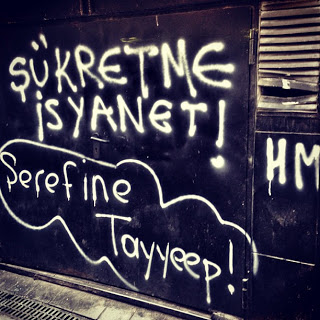 ŞÜKRETME
İSYANET!
HM
Şerefine
Tayyeep!